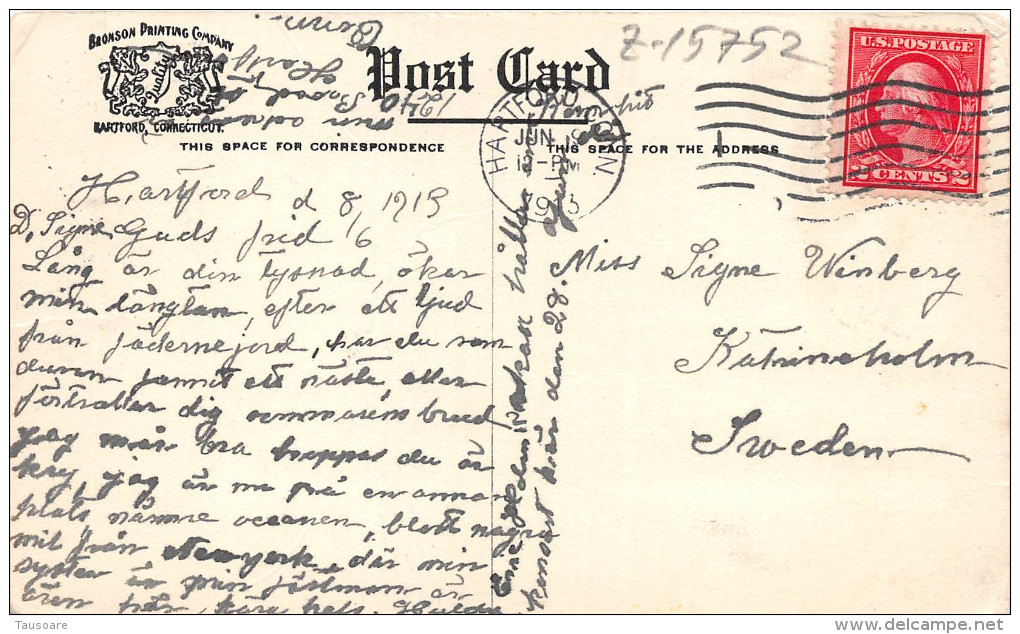 BRONSON PRINTING COMPANY
Quality
HARTFORD, CONNECTICUT.
Post Card
Z-15752
U.S. POSTAGE
2 CENTS 2
HARTFORD CONN.
JUN 9
12-PM
1913
THIS SPACE FOR CORRESPONDENCE
THIS SPACE FOR THE ADDRESS
Hartford d 8/6 1913
D, Signe Guds frid
Lång är din tysnad, öker
min längtan, efter ett ljud
från fädernejord, har du som
duvan funnit ett näste, eller
förtraller dig sommarens brud
jag mår bra hoppas du är
kry, jag är nu på en annan
plats närmre oceanen, blott några
mil från Newyork, där min
syster är
kära hels. Hulda
konsert här den 28.
Miss Signe Winberg
Katrineholm
Sweden
Tausoare